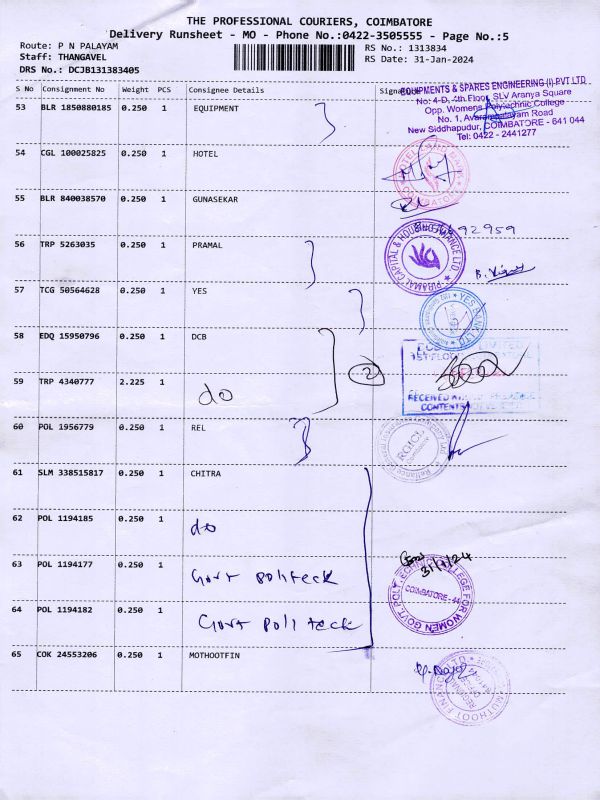 THE PROFESSIONAL COURIERS, COIMBATORE
Delivery Runsheet - MO - Phone No.:0422-3505555 - Page No.:5
Route: P N PALAYAM
Staff: THANGAVEL
DRS No.: DCJB131383405
RS No.: 1313834
RS Date: 31-Jan-2024
S No Consignment No Weight PCS Consignee Details
53 BLR 1850880185 0.250 1 EQUIPMENT
EQUIPMENTS & SPARES ENGINEERING (I) PVT LTD
No: 4-D, 4th Floor, SLV Aranya Square
Opp. Womens Polytechnic College
No. 1, Avarampalayam Road
New Siddhapudur, COIMBATORE - 641 044
Tel: 0422 - 2441277
54 CGL 100025825 0.250 1 HOTEL
COIMBATORE
55 BLR 840038570 0.250 1 GUNASEKAR
92959
56 TRP 5263035 0.250 1 PRAMAL
PIRAMAL CAPITAL & HOUSING FINANCE LTD.
57 TCG 50564628 0.250 1 YES
YES BANK LTD
58 EDQ 15950796 0.250 1 DCB
LIMITED
59 TRP 4340777 2.225 1 do
2
RECEIVED
CONTENTS
60 POL 1956779 0.250 1 REL
RGICL
61 SLM 338515817 0.250 1 CHITRA
62 POL 1194185 0.250 1 do
63 POL 1194177 0.250 1 Govt politeck
31/1/24
64 POL 1194182 0.250 1 Govt poli teck
GOVT. POLYTECHNIC COLLEGE FOR WOMEN
COIMBATORE - 44
65 COK 24553206 0.250 1 MOTHOOTFIN
MUTHOOT FINANCE LTD
REGIONAL OFFICE